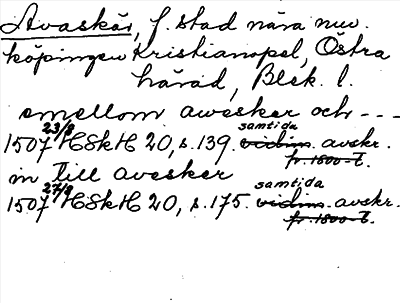 Avaskär, f. stad nära nuv.
köpingen Kristianopel, Östra
härad, Blek. l.
emellom awesker och ---
1507 23/8 HSkH 20, s. 139. samtida vidim. avskr. fr. 1800-t.
in till avesker
1507 27/8 HSkH 20, s. 175. samtida vidim. avskr. fr. 1800-t.